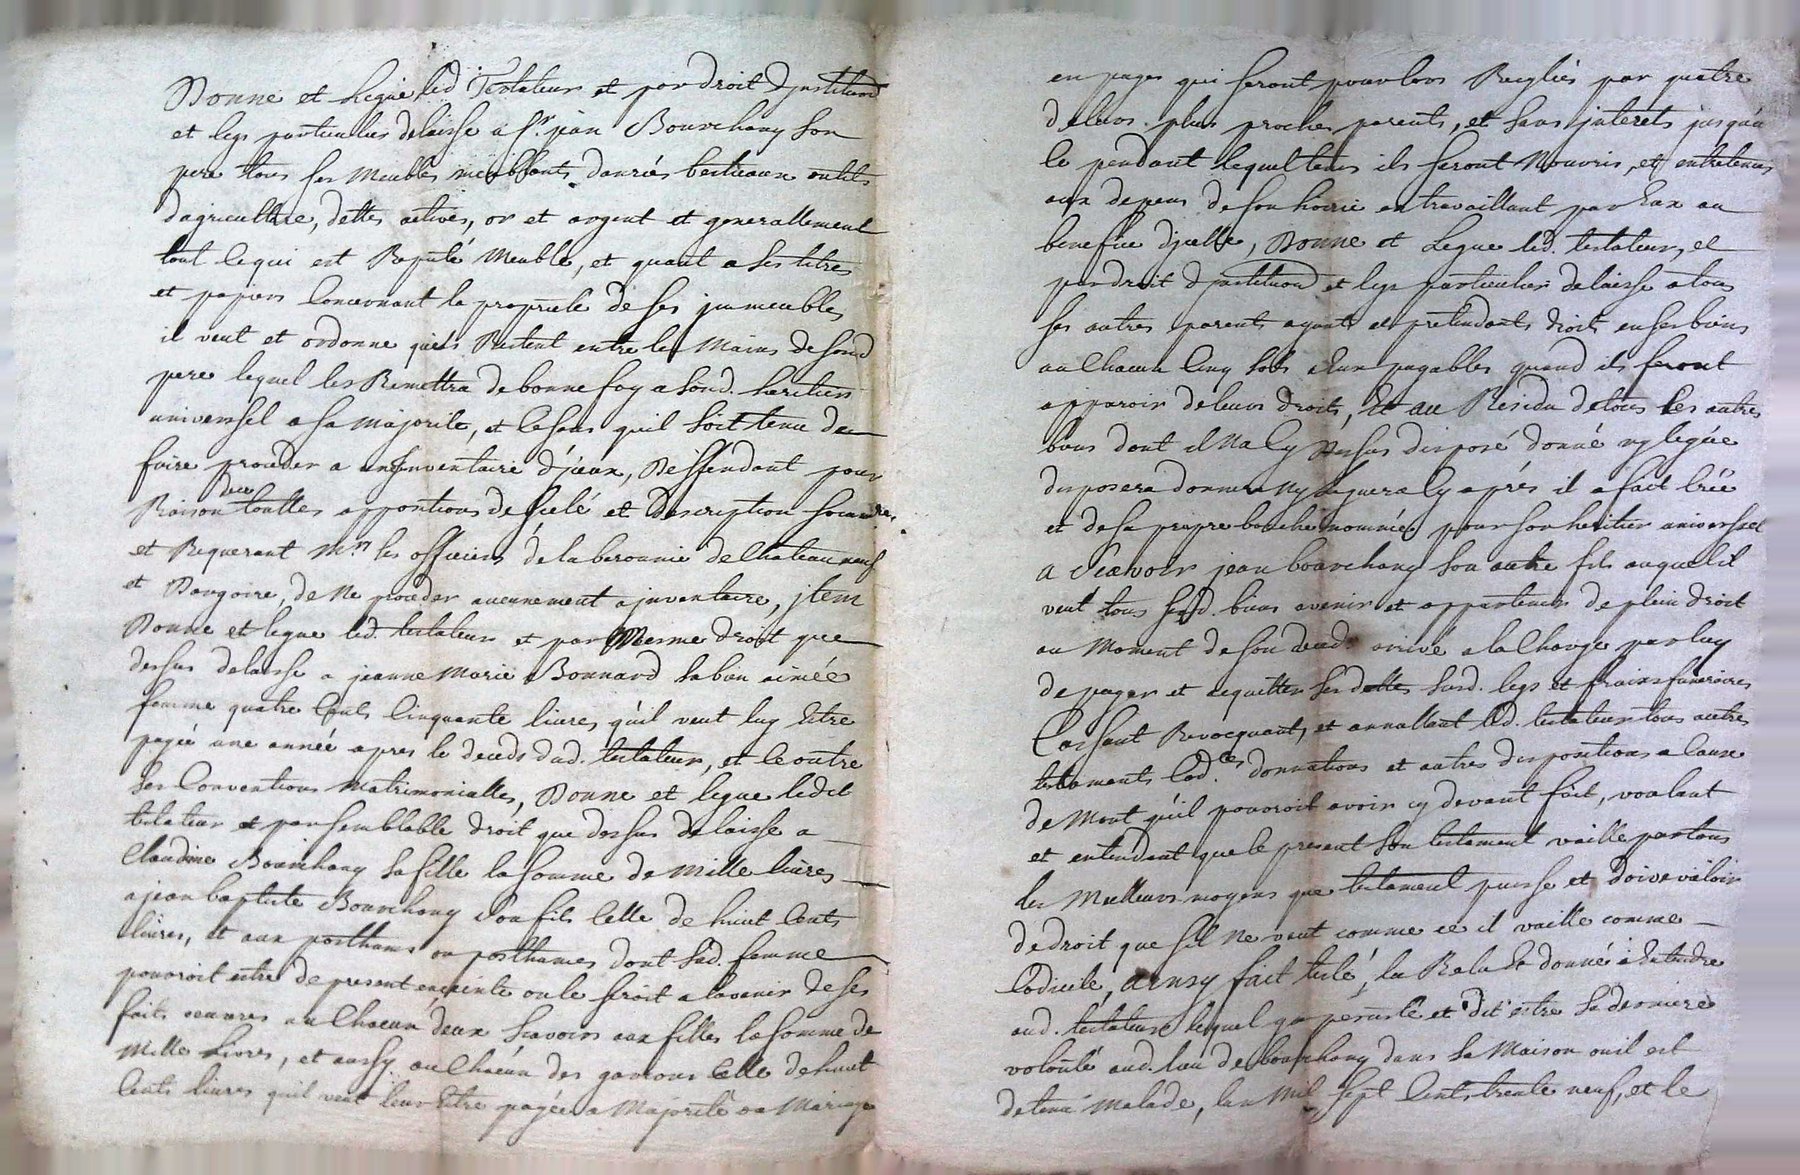 Donne et Legue led Testateur et par droit d'jnstitution
et legs particulier delaisse a Sr. jean Bourchany son
pere tous ses Meubles meublants danrées bestieaux outils
d'agriculture, dettes actives, or et argent et generallement
tout ce qui est Reputé Meuble, et quant a ses titres
et papiers Concernant la propriete de ses jmmeubles
il veut et ordonne qu'ils Restent entre les Mains de sond
pere lequel les Remettra de bonne foy a sond. heritier
universsel a sa Majorite, et ce sans quil soit tenu de
faire proceder a un jnventaire d'jceux, Deffendant pour
Raison de ce touttes appositions de scelé et Description sommaire
et Requerant Mrs les officiers de la baronnie de Chateauneuf
et Dangoire, de Ne proceder aucunement a jnventaire, jtem
Donne et legue led. testateur et par Mesme droit que
dessus delaisse a jeanne Marie Bonnard sa bien aimée
femme quatre Cents Cinquante livres qu'il veut luy Estre
payée une année apres le deceds dud. testateur, et ce outre
ses Conventions Matrimonialles, Donne et legue ledit
testateur et par semblable droit que dessus delaisse a
Claudine Bourchany sa fille la somme de Mille livres
a jean baptiste Bourchany son fils Celle de huit Cents
livres, et aux posthume ou posthumes dont sad. femme
pouroit estre de present enceinte ou le seroit a l'avenir de ses
faits oeuvres au Chacun deux Scavoir aux filles la somme de
Mille Livres, et aussy au Chacun des garcons Celle de huit
Cents livres quil veut leur Estre payée a Majorité ou Mariage
en payes qui seront pour lors Reglées par quatre
de leurs plus proches parents, et sans jnterets jusqu'a
ce pendant lequel tems ils seront Nourris, et entretenus
aux depens de son hoirie en travaillant par Eux au
benefice d'jcelle, Donne et Legue led. testateur, et
par droit d'jnstitution et legs particulier delaisse a tous
ses autres parents ayants et pretendants droit en ses biens
au Chacun Cinq sols a Eux payables quand ils feront
apparoir de leurs droits, Et au Residu de tous les autres
biens dont il Na Cy Dessus disposé donné ny legué
disposera donnera Ny leguera Cy aprés il a fait Créé
et de sa propre bouche nommée pour son heritier universsel
a Scavoir jean bourchany son autre fils auquel il
veut tous sesd. biens avenir et appartenir de plein droit
au Moment de son deced. arrivé a la Charge par luy
de payer et acquitter ses dettes susd. legs et frais funeraires
Cassant Revocquant, et annullant led. testateur tous autres
testaments Cod.les donnations et autres dispositions a Cause
de Mort qu'il pouroit avoir cy devant fait, voulant
et entendant que le present son testament vaille par tous
les Meilleurs moyens que testament puisse et doive valoir
de droit que s'il Ne vaut comme ce il vaille comme
Codicile, Ainsy fait testé, lu Relu Et donné a Entendre
aud. testateur lequel y a persisté et dit estre sa derniere
volonté aud. lieu de bourchany dans sa Maison ou il est
detenu Malade, lan Mil Sept Cents trente neuf, et le